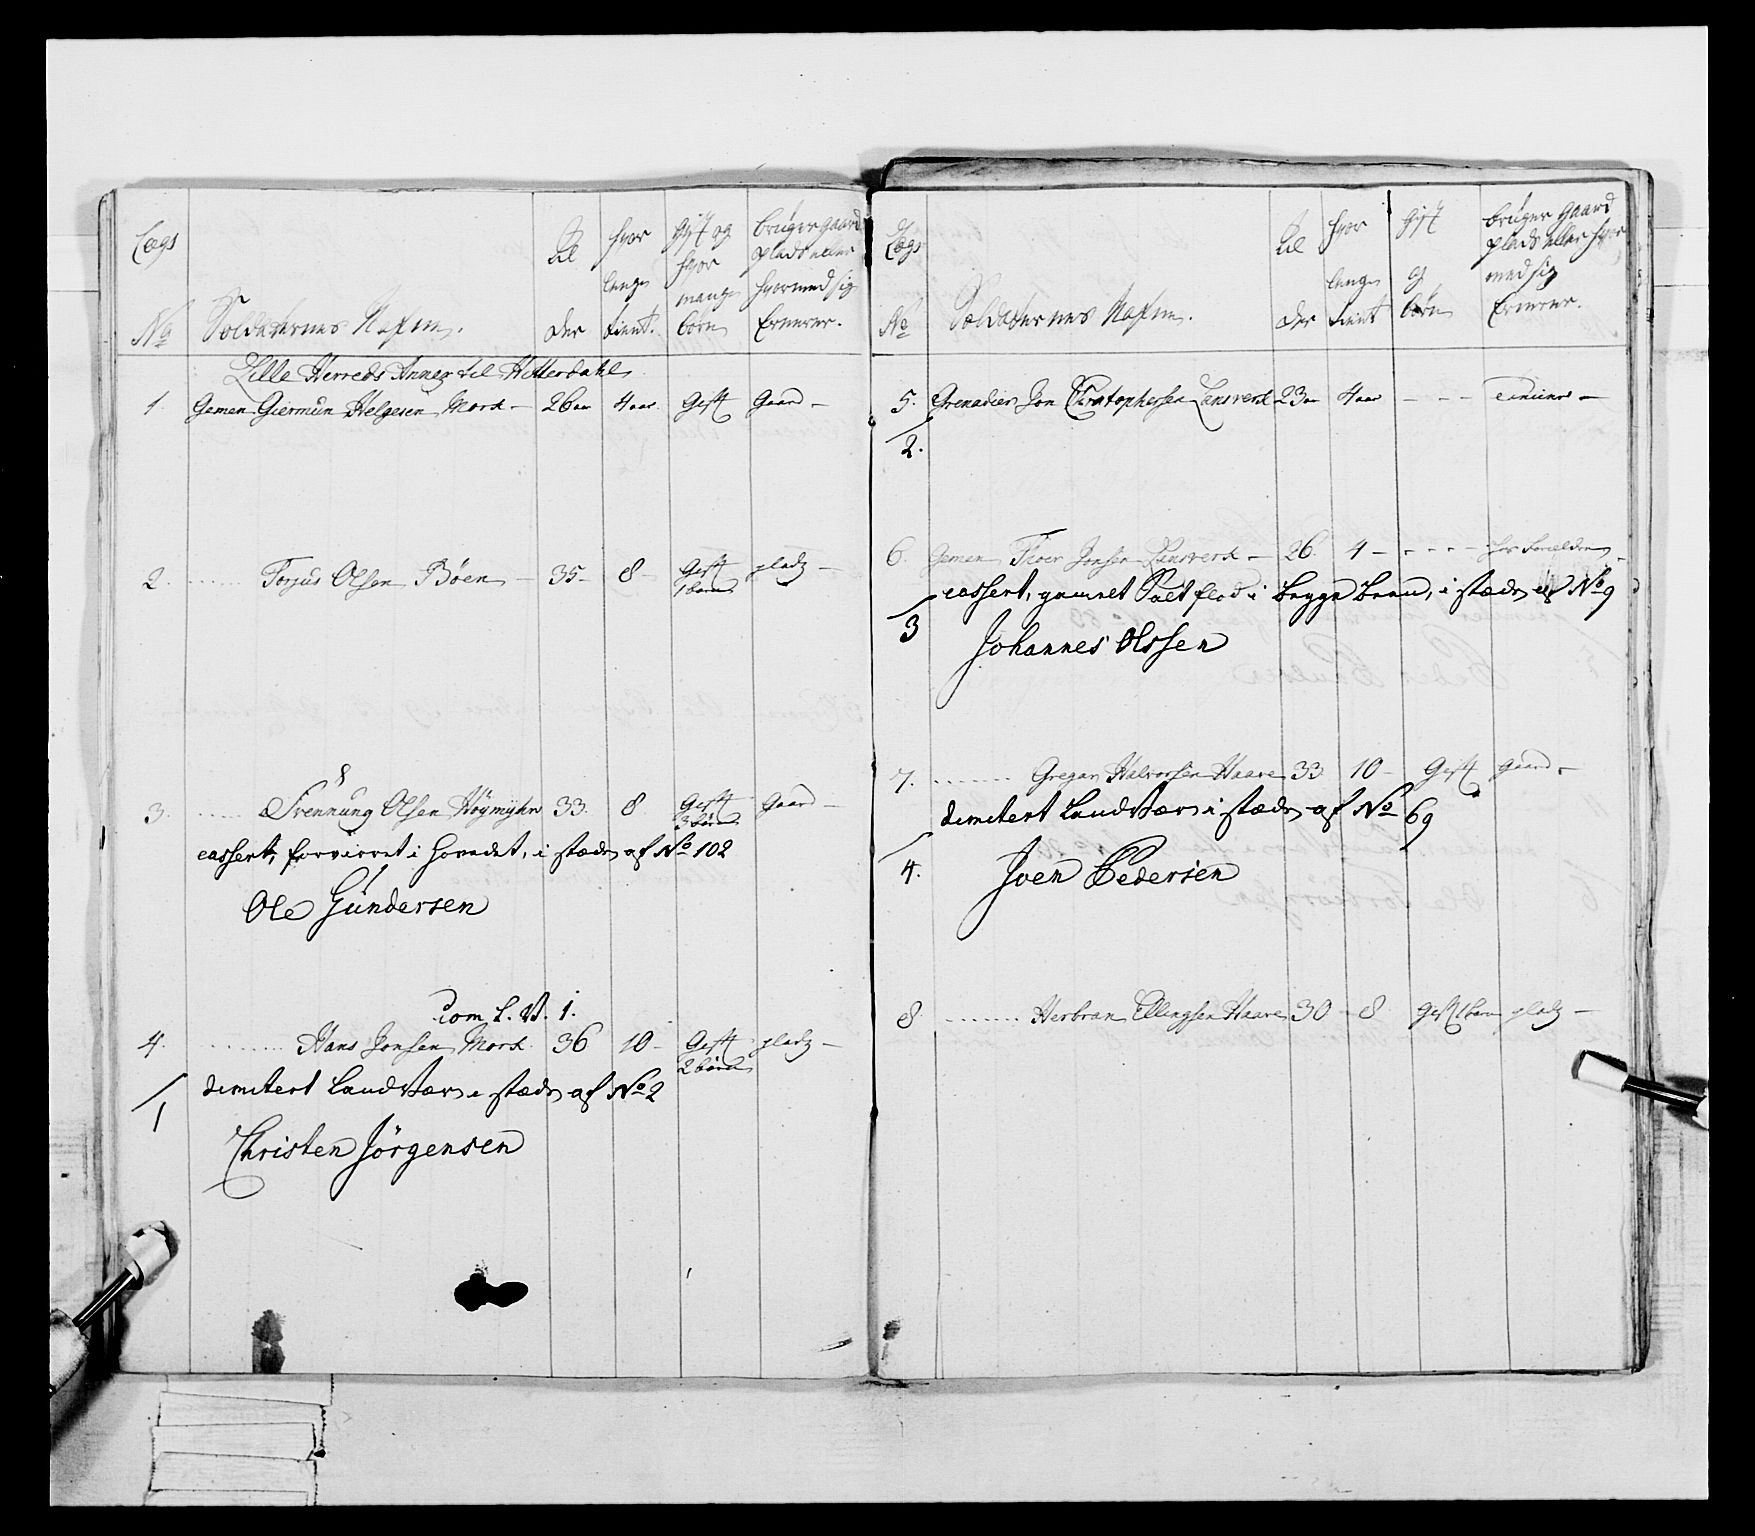 Lægs No
Soldaternes Nafne.
Al der
hvor lenge tient.
Gift og hvor mange börn
bruger gaard plads eller hvormed sig Ernerer.
Lille Herreds Annex til Hitterdahl
1. Gemen Giermun Helgesen Mork - 26 aar 4 aar Gift Gaard -
2. Torjus Olsen Böen - 35 - 8 - Gift 1 barn pladz -
8
3. Svennung Olsen Höymyhr 33. 8. Gift 3 börn Gaard -
cassert, forvirret i hovedet, i stæden af No 102
Ole Gundersen
Com. L. V. 1.
4. Hans Jonsen Mork 36 10 - Gift 2 börn pladz -
dimitert Landvær i stæden af No 2
1
Christen Jörgensen
Lægs No
Soldaternes Nafne.
Al der
hvor lenge tient
Gift og börn
bruger Gaard plads eller hvor med sig Ernerer.
5. Grenadier Jon Christophersen Lansverk 23 aar 4 aar - - -
2.
6. Gemen Jonsen Lansverk - 26. 4 - - - - hos Forældre -
cassert, i begge been, i stæden af No 9
3
Johannes Olssen
7. Gregar Halvorsen Haave 33 10 - Gift Gaard -
dimitert Landvær i stæden af No 69
4.
Joen Pedersen
8 Herbran Ellingsen Haave 30 - 8 Gift 1 barn pladz -